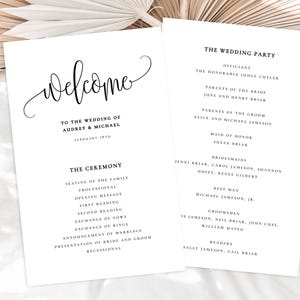 welcome
TO THE WEDDING OF
AUDREY & MICHAEL
FEBRUARY 18TH
THE CEREMONY
SEATING OF THE FAMILY
PROCESSIONAL
OPENING MESSAGE
FIRST READING
SECOND READING
EXCHANGE OF VOWS
EXCHANGE OF RINGS
ANNOUNCEMENT OF MARRIAGE
PRESENTATION OF BRIDE AND GROOM
RECESSIONAL
THE WEDDING PARTY
OFFICIANT
THE HONORABLE JUDGE CUTLER
PARENTS OF THE BRIDE
JANE AND HENRY BRIAR
PARENTS OF THE GROOM
ALICE AND MICHAEL JAMESON
MAID OF HONOR
SUSAN BRIAR
BRIDESMAIDS
BRIAR, CAROL JAMESON, SHANNON
RENEE GILBERT
BEST MAN
MICHAEL JAMESON, JR.
GROOMSMEN
BRIAR, NEIL, JOHN CHEE,
WILLIAM MATEO
READERS
SALLY JAMESON, GAIL BRIAR